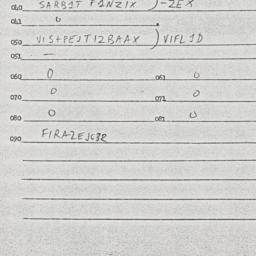 040 SARBIT FINZIX )-ZEX
041 0
050 VISTPEJTIZBAAX ) VIFLID
051 —
060 0 061 0
070 0 071 0
080 0 081 0
090 FIRAZEJG32